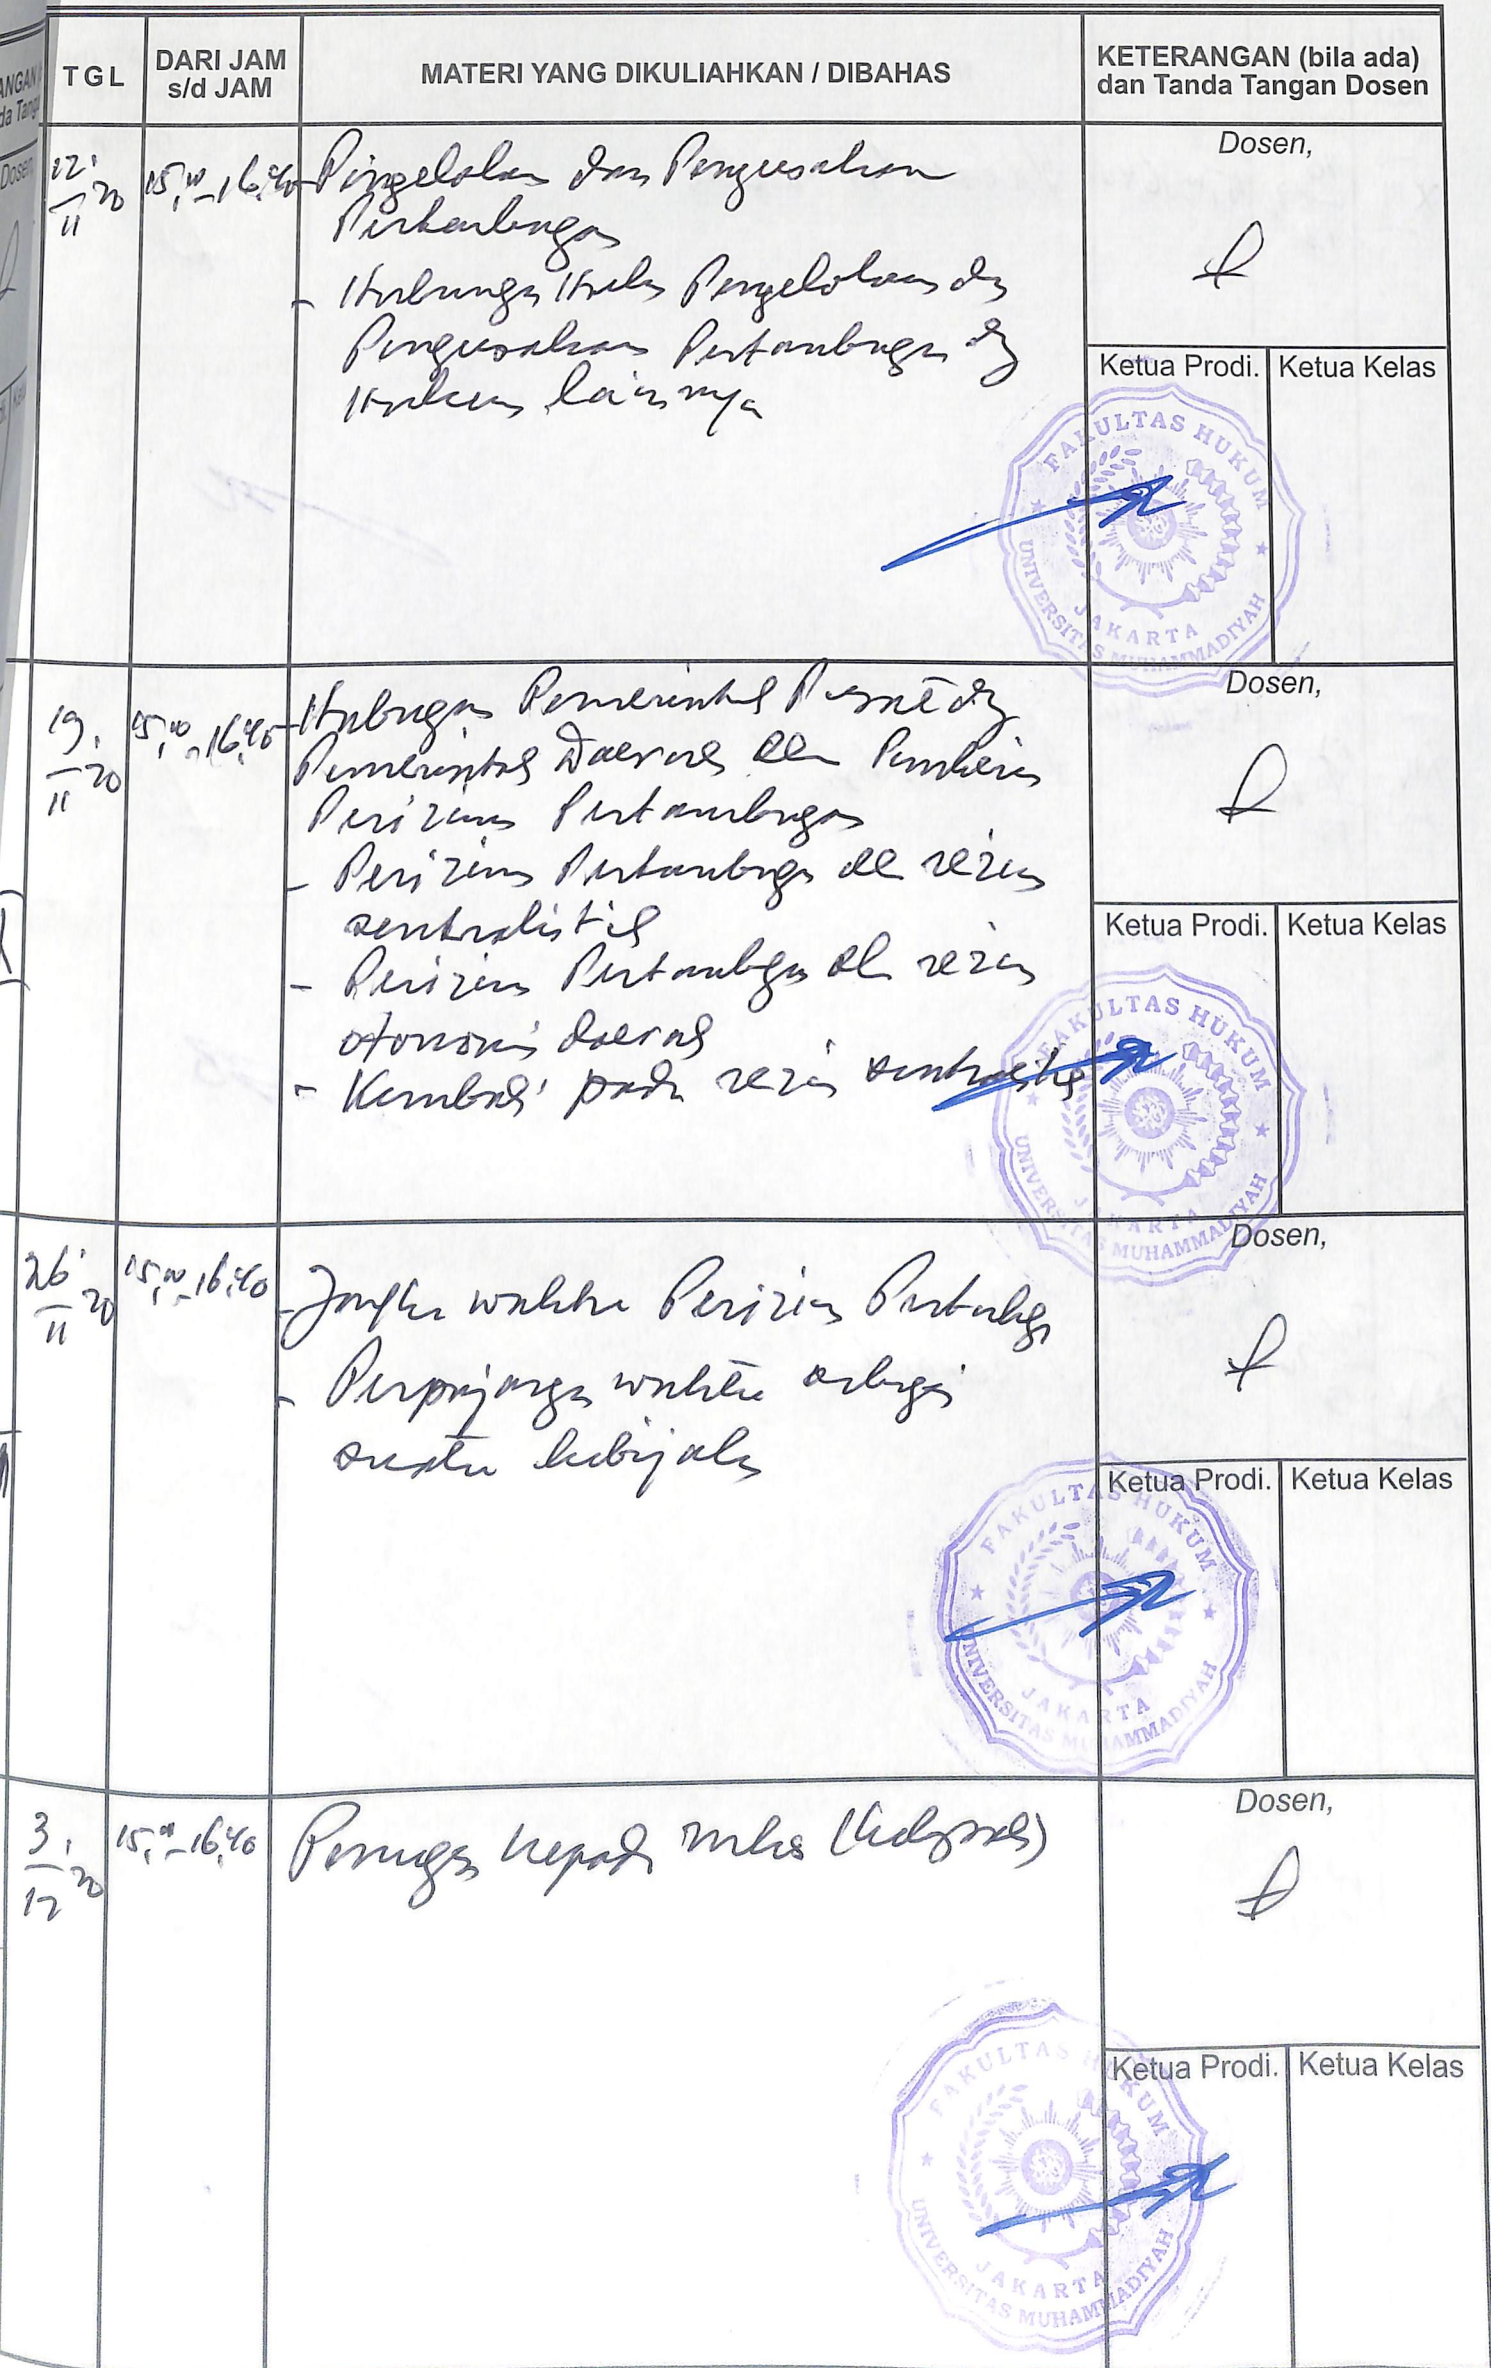 TGL
DARI JAM
s/d JAM
MATERI YANG DIKULIAHKAN / DIBAHAS
KETERANGAN (bila ada)
dan Tanda Tangan Dosen
12
11 20
15.00 - 16.40
- Pengelolaan dan Pengusahaan
Pertambangan
- Hubungan Pengelolaan
Pengusahaan Pertambangan
Hukum lainnya
Dosen,
Ketua Prodi.
Ketua Kelas
FAKULTAS HUKUM
UNIVERSITAS MUHAMMADIYAH
JAKARTA
19
11 20
15.00 - 16.40
- Hubungan Pemerintah Pusat dg
Pemerintah Daerah
Perizinan Pertambangan
- Perizinan Pertambangan rezim
sentralistik
- Perizinan Pertambangan rezim
otonomi daerah
- Kembali pada rezim sentralistik
Dosen,
Ketua Prodi.
Ketua Kelas
FAKULTAS HUKUM
UNIVERSITAS MUHAMMADIYAH
JAKARTA
26
11 20
15.00 - 16.40
- Jangka waktu Perizinan
- Perpanjangan waktu sebagai
suatu kebijakan
Dosen,
Ketua Prodi.
Ketua Kelas
FAKULTAS HUKUM
UNIVERSITAS MUHAMMADIYAH
JAKARTA
3
12 20
15.00 - 16.40
kepada
Dosen,
Ketua Prodi.
Ketua Kelas
FAKULTAS HUKUM
UNIVERSITAS MUHAMMADIYAH
JAKARTA